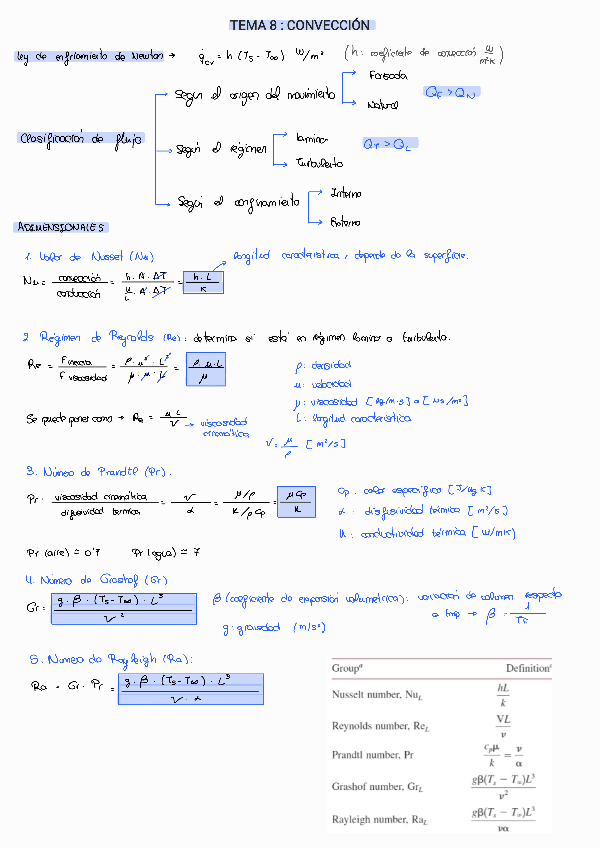 TEMA 8 : CONVECCIÓN
Ley de enfriamiento de Newton → q̇cv = h (Ts - T∞) W/m² (h: coeficiente de convección W/m²K)
Forzada
Según el origen del movimiento
Natural
QF > QN
Clasificación de flujo
laminar
Según el régimen
Turbulento
QT > QL
Según el confinamiento
Interno
Externo
ADIMENSIONALES
1. Valor de Nusset (Nu)
longitud característica, depende de la superficie.
Nu = convección / conducción = h · A · ΔT / k/L · A · ΔT = h · L / k
2. Régimen de Reynolds (Re): determina si está en régimen laminar o turbulento.
Re = F inercia / F viscosidad = ρ · u² · L² / μ · u · L = ρ u · L / μ
ρ: densidad
u: velocidad
μ: viscosidad [kg/m·s] o [Ns/m²]
L: longitud característica
Se puede poner como → Re = u L / ν → viscosidad cinemática
ν = μ / ρ [m²/s]
3. Número de Prandtl (Pr).
Pr = viscosidad cinemática / difusividad térmica = ν / α = μ/ρ / k/ρ cp = μ cp / k
cp: calor específico [J/kg K]
α: difusividad térmica [m²/s]
k: conductividad térmica [W/mK]
Pr (aire) ≈ 0'7 Pr (agua) ≈ 7
4. Número de Grashof (Gr)
Gr = g · β · (Ts - T∞) · L³ / ν²
β (coeficiente de expansión volumétrica): variación de volumen respecto
a tmp → β = 1 /
g: gravedad (m/s²)
5. Número de Rayleigh (Ra):
Ra = Gr · Pr = g · β · (Ts - T∞) · L³ / ν · α
Groupᵃ Definitionᶜ
Nusselt number, NuL hL / k
Reynolds number, ReL VL / ν
Prandtl number, Pr cpμ / k = ν / α
Grashof number, GrL gβ(Ts − T∞)L³ / ν²
Rayleigh number, RaL gβ(Ts − T∞)L³ / να